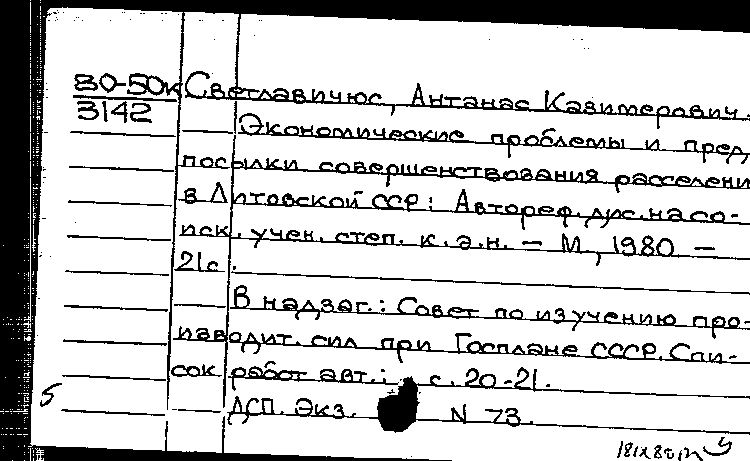 80-50к Светлавичюс, Антанас Казимерович.
3142
Экономические проблемы и пред
посылки совершенствования расселени
в Литовской ССР: Автореф. дис. на со-
иск. учен. степ. к.э.н. – М., 1980 –
21с.
В надзаг.: Совет по изучению про-
изводит. сил при Госплане СССР. Спи-
сок работ авт.: с. 20-21.
5
ДСП. Экз. N 73.